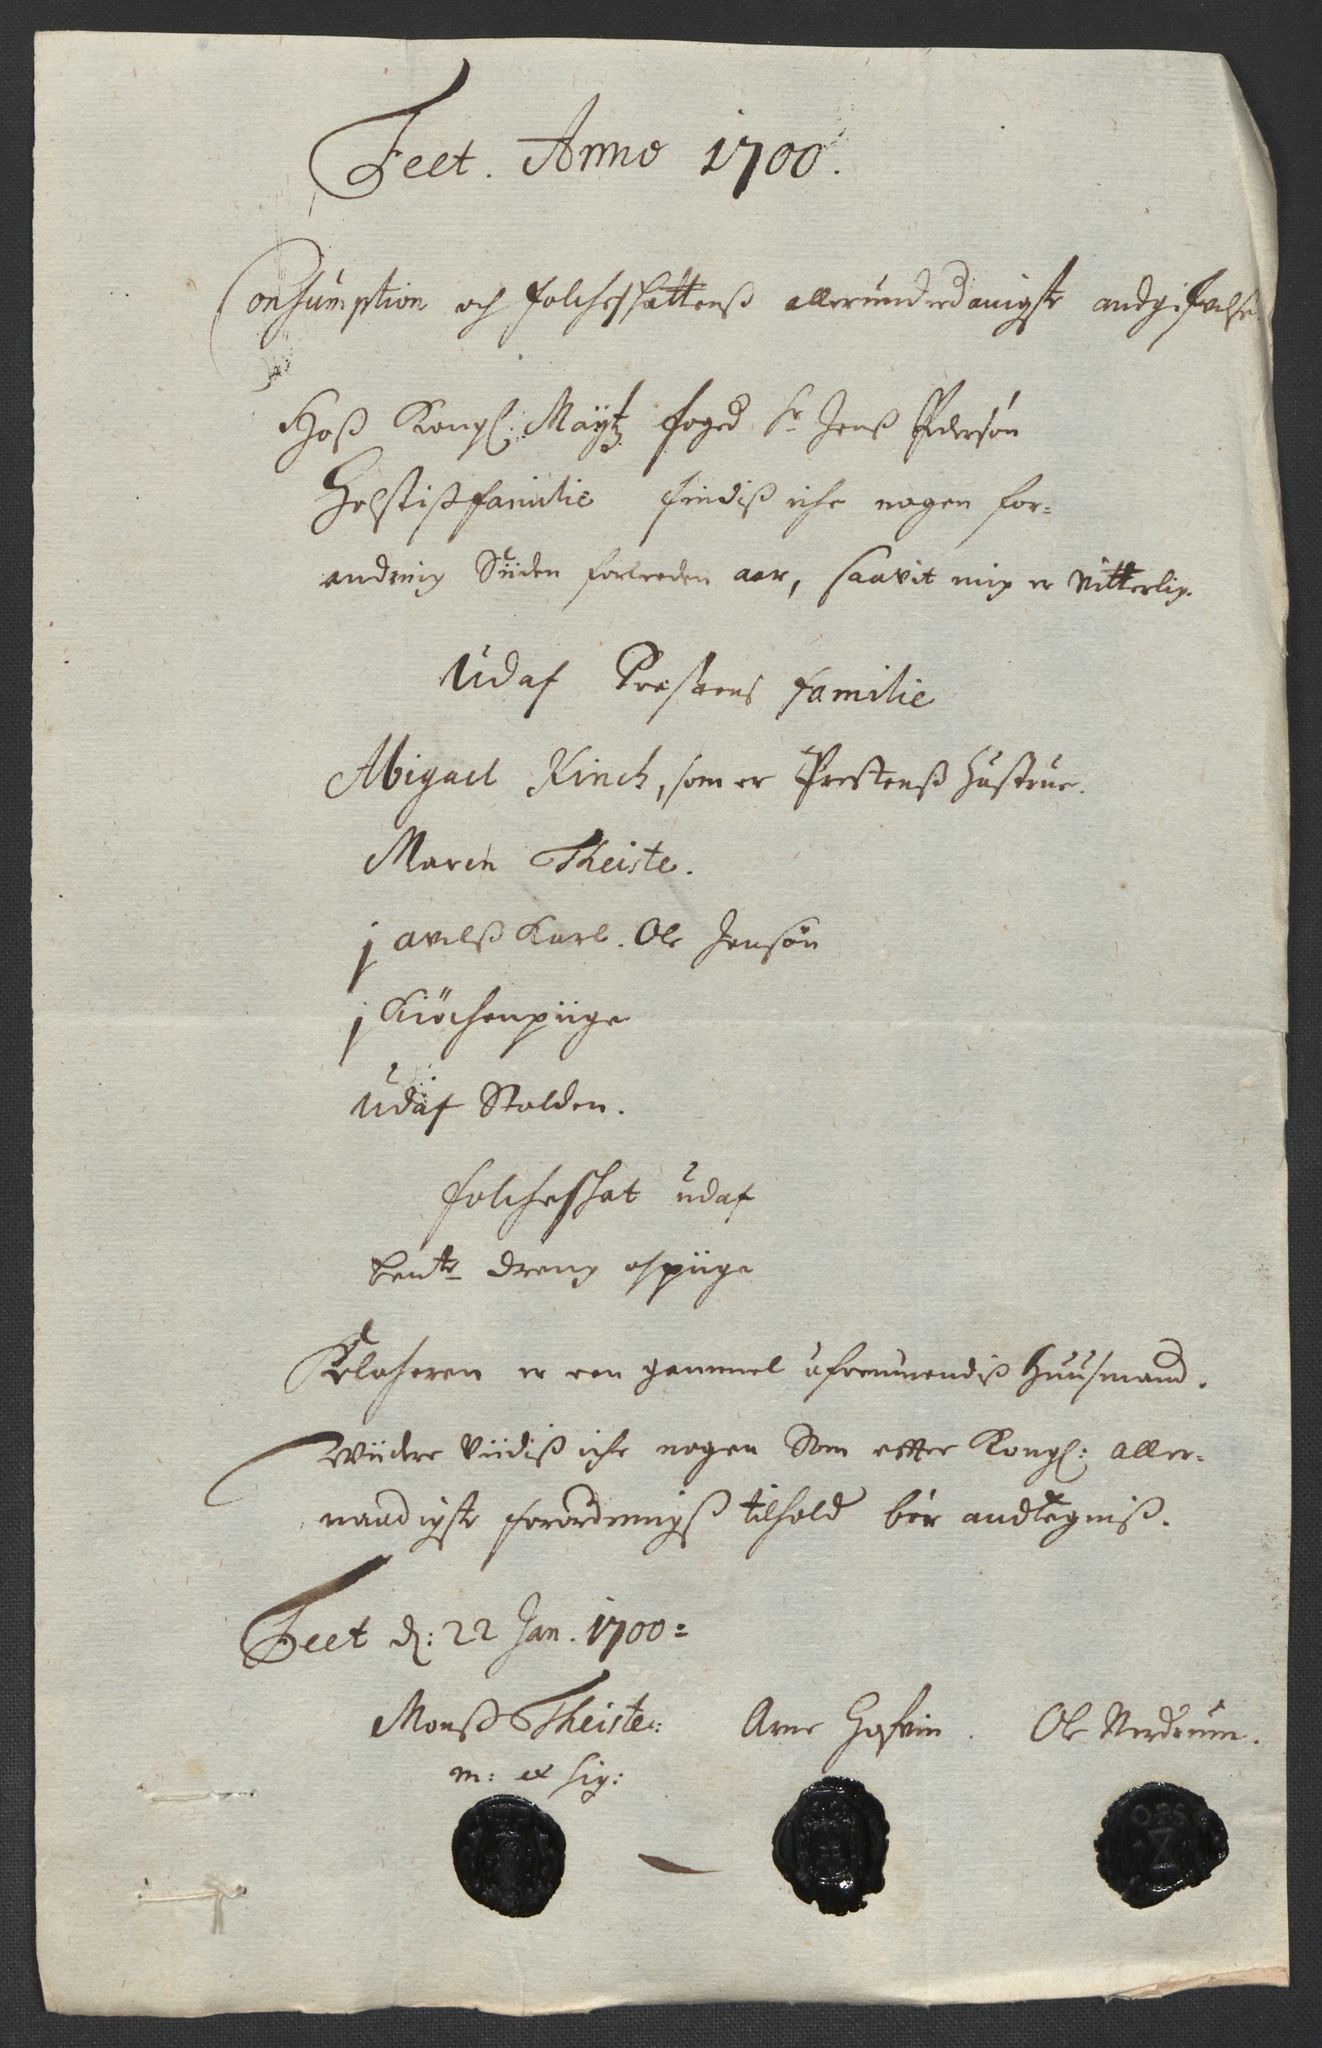 Feet. Anno 1700.
Consumption och folcheskattenß allerunderdanigste andgifvelse.
Hoß Kongl: Maÿtz foged Sr Jenß Pedersøn
familie findiß iche nogen for=
andring Siiden forleeden aar, saavit mig er vitterlig.
Udaf Prestens familie
Abigael Kinck, som er Prestenß hustrue.
Maren Theiste.
j avelß Karl. Ole Jensøn
j Kiöchenpiige
Udaf Stolden.
folcheskat udaf
dreng och piige
Klocheren er een gammel Huusmand.
Wiidere viidiß iche nogen Som effter Kongl: aller=
naadigste forordningß tilhold bør andtegniß.
Feet d: 22 Jan. 1700=
Monß Theiste: Arne Hofvin. Ole Nerdrum.
m: et sig:
OPS